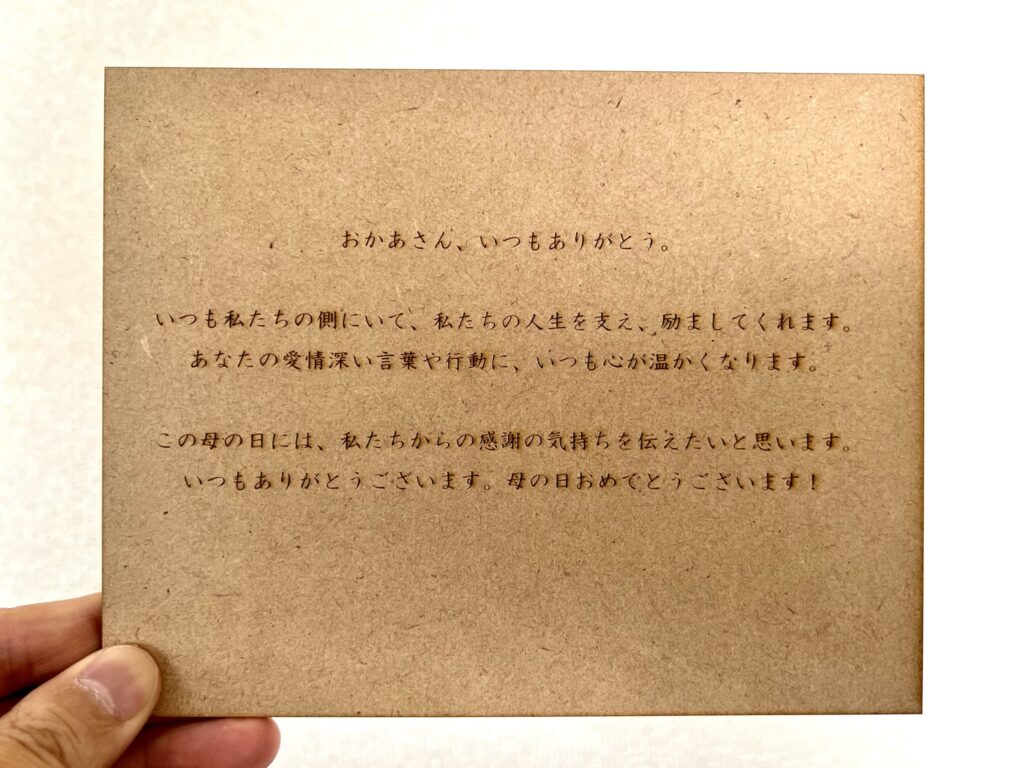 おかあさん、いつもありがとう。
いつも私たちの側にいて、私たちの人生を支え、励ましてくれます。
あなたの愛情深い言葉や行動に、いつも心が温かくなります。
この母の日には、私たちからの感謝の気持ちを伝えたいと思います。
いつもありがとうございます。母の日おめでとうございます！